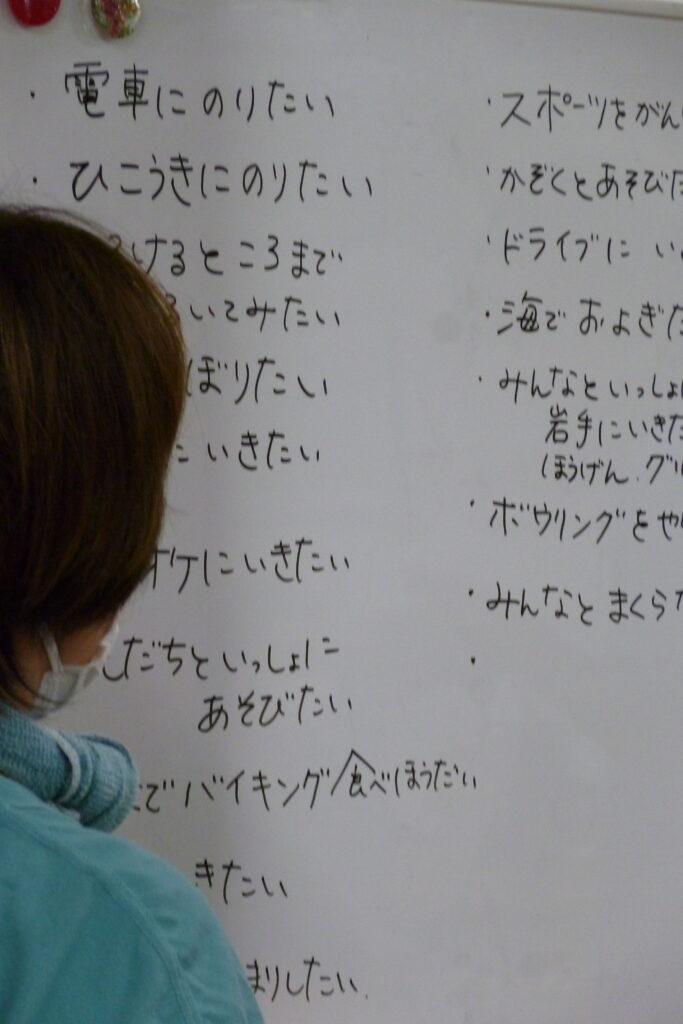 ・電車にのりたい
・ひこうきにのりたい
けるところまで
いてみたい
ぼりたい
にいきたい
オケにいきたい
だちといっしょに
あそびたい
でバイキング/食べほうだい
きたい
まりしたい.
・スポーツをがん
・かぞくとあそびた
・ドライブに い
・海でおよぎた
・みんなといっしょに
岩手にいきた
ほうげん.グル
・ボウリングをや
・みんなとまくらな
・